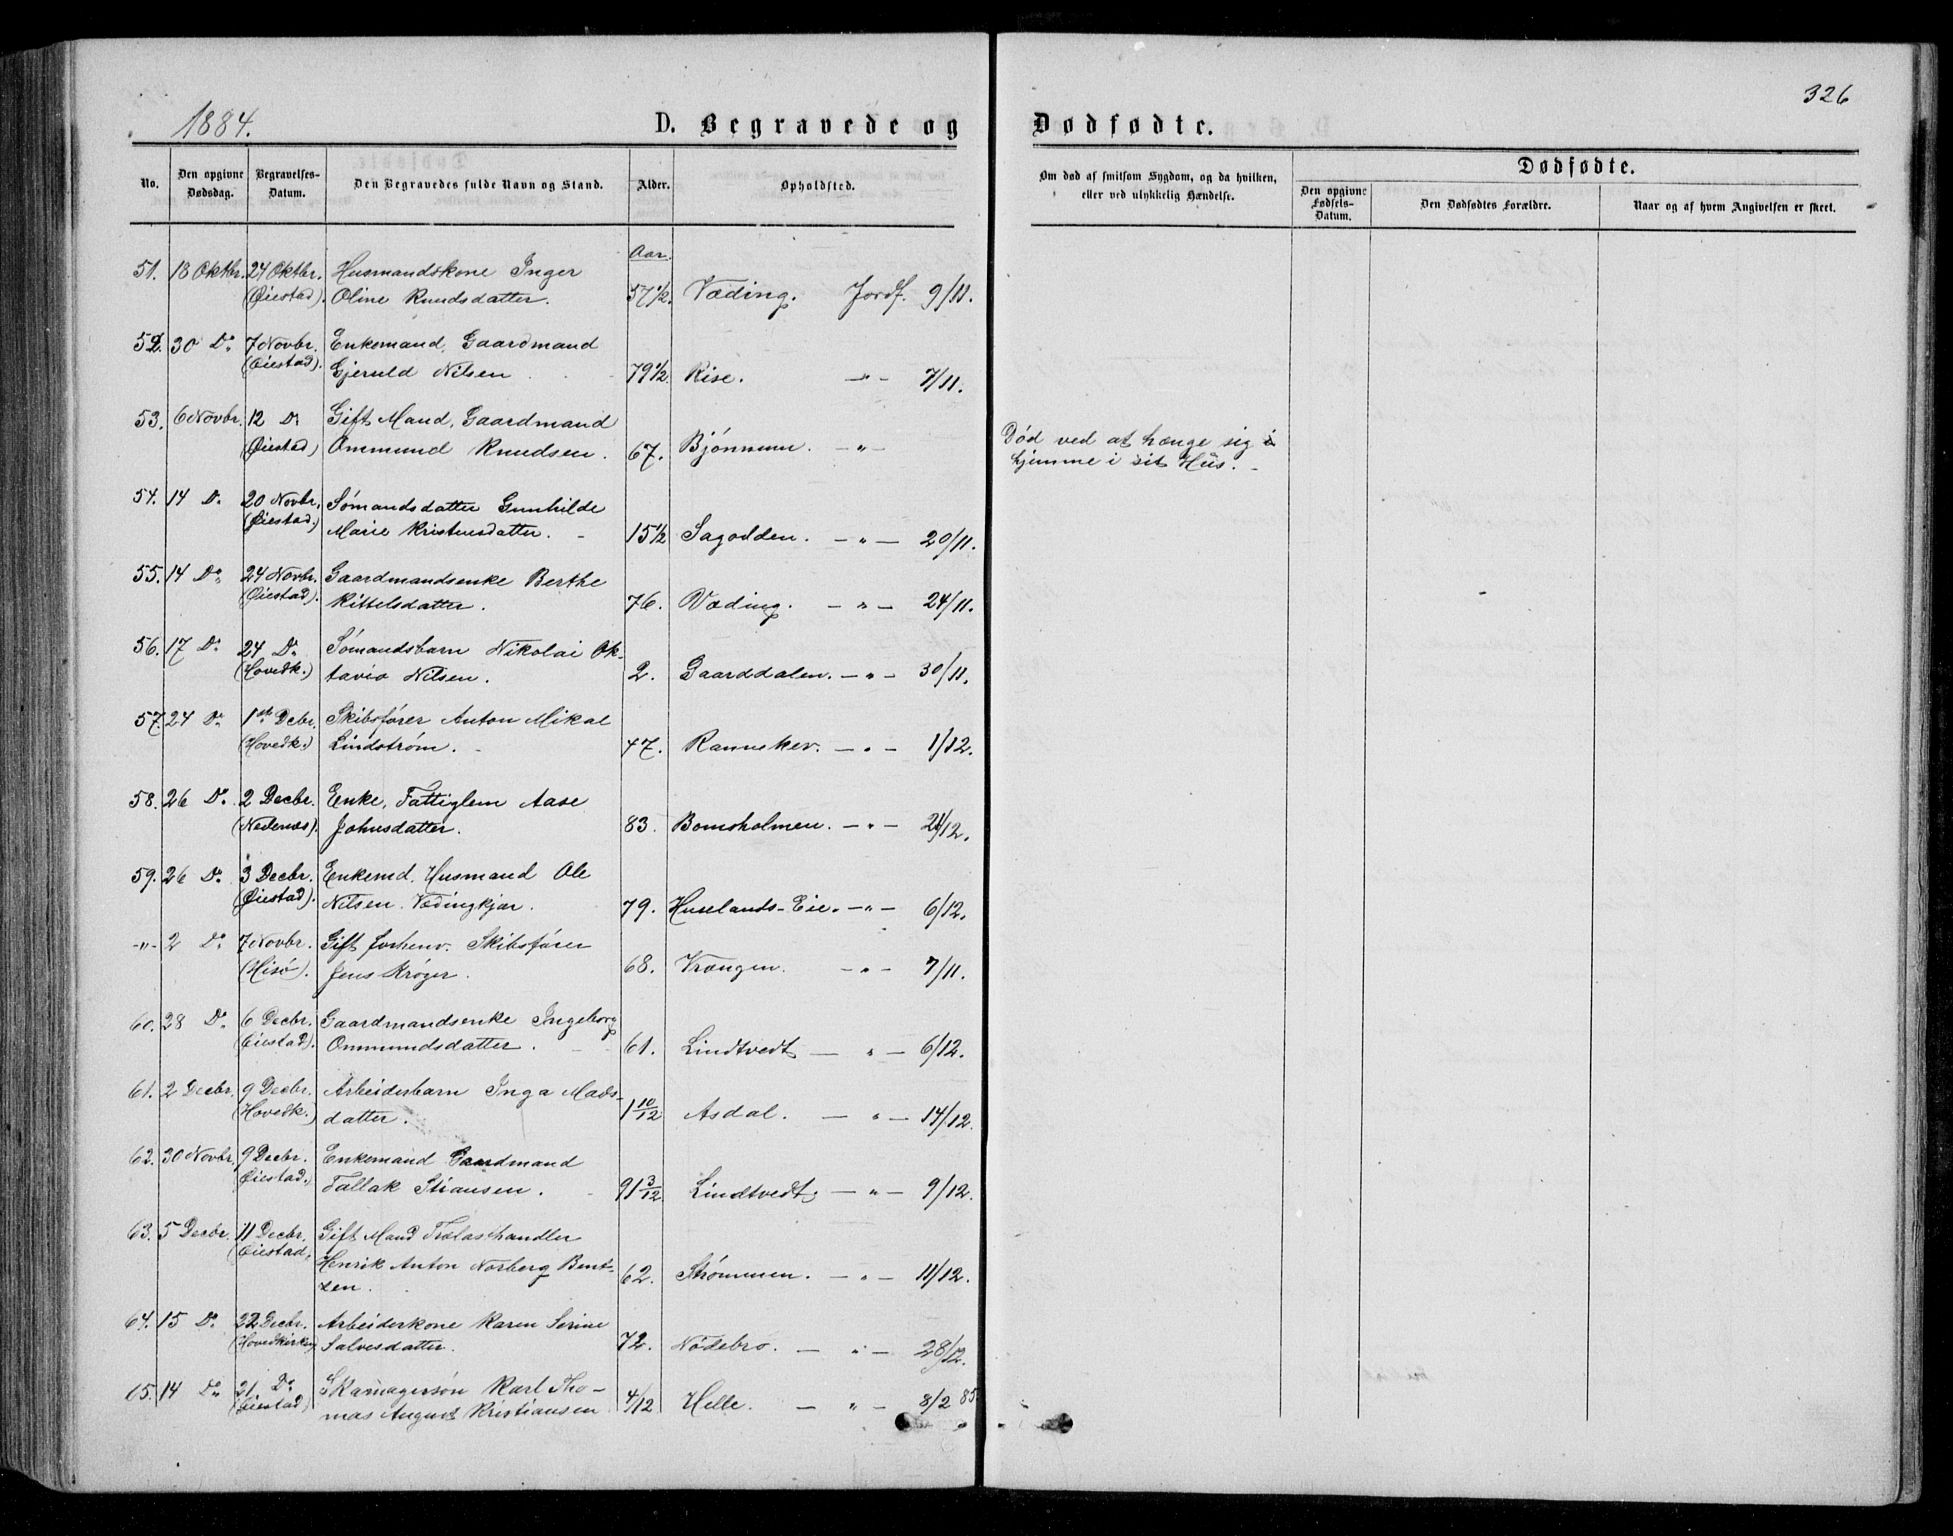 1884.
D. Begravede og
Dødfødte.
326
No. Den opgivne Dødsdag. Begravelses-Datum. Den Begravedes fulde Navn og Stand. Alder. Opholdsted.
Om død af smitsom Sygdom, og da hvilken, eller ved ulykkelig Hændelse.
Dødfødte.
Den opgivne Fødsels-Datum. Den Dødfødtes Forældre. Naar og af hvem Angivelsen er skeet.
Aar.
51. 18 Oktbr. 24 Oktbr. Husmandskone Inger
(Øiestad). Oline Knudsdatter. 57 1/2. Væding. Jordf. 9/11.
52. 30 Do 7 Novbr. Enkemand, Gaardmand
(Øiestad). Gjeruld Nilsen 79 1/2. Rise. —"— 7/11.
53. 6 Novbr. 12 Do Gift Mand, Gaardmand
(Øiestad) Ommund Knudsen. 67. Bjønnum. —"—
Død ved at hænge sig
hjemme i sit Hus.
54. 14 Do 20 Novbr. Sømandsdatter Gunhilde
(Øiestad.) Marie Kristensdatter. 15 1/2 Sagodden. —"— 20/11.
55. 14 Do 24 Novbr. Gaardmandsenke Berthe
(Øiestad). Kittelsdatter. 76. Væding. —"— 24/11.
56. 17 Do 24 Do Sømandsbarn Nikolai Ok-
(Hovedk.) tavio Nilsen. 2. Gaarddalen. —"— 30/11.
57. 24 Do 1ste Decbr. Skibsfører Anton Mikal
(Hovedk.) Lindstrøm. 47. Rannekev. —"— 1/12.
58. 26 Do 2 Decbr. Enke, Fattiglem Aase
(Nedenes). Johnsdatter. 83. Bomsholmen. —"— /12.
59. 26 Do 3 Decbr. Enkemd. Husmand Ole
(Øiestad). Nilsen Vædingkjær. 79. Huselands-Eie. —"— 6/12.
-"- 2 Do 7 Novbr. Gift forhenv. Skibsfører
(Hisø). Jens Krøger. 68. Vrængen. —"— 7/11.
60. 28 Do 6 Decbr. Gaardmandsenke Ingeborg
(Øiestad). Ommundsdatter. 61. Lindtvedt —"— 6/12.
61. 2 Decbr. 9 Decbr. Arbeiderbarn Inga Mads-
(Hovedk.) datter. 1 10/12 Asdal. —"— 14/12.
62. 30 Novbr. 9 Decbr. Enkemand Gaardmand
(Øiestad.) Tallak Stiansen. 91 3/12 Lindtvedt. —"— 9/12.
63. 5 Decbr. 11 Decbr. Gift Mand Trælasthandler
(Øiestad. Henrik Anton Norberg Bent- 62. Strømmen. —"— 11/12.
zen.
64. 15 Do 22 Decbr. Arbeiderkone Karen Serine
(Hovedkirken) Salvesdatter. 72. Nødebro. —"— 28/12.
65. 14 Do 21 Do Skomagersøn Karl Tho-
(Øiestad) mas August Kristiansen 4/12 Helle. —"— 8/2 85